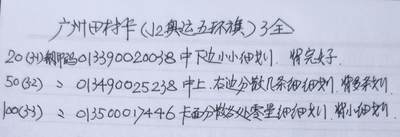 广州田村卡(J2奥运五环旗)3全
20(3-1)钢印码013390020038中下边小小细划.背完好.
50(3-2) 〃 013490025238中上.右边分散几条细细划.背多条划.
100(3-3) 〃 013500017446卡面分散各处零星细细划.背小细划.